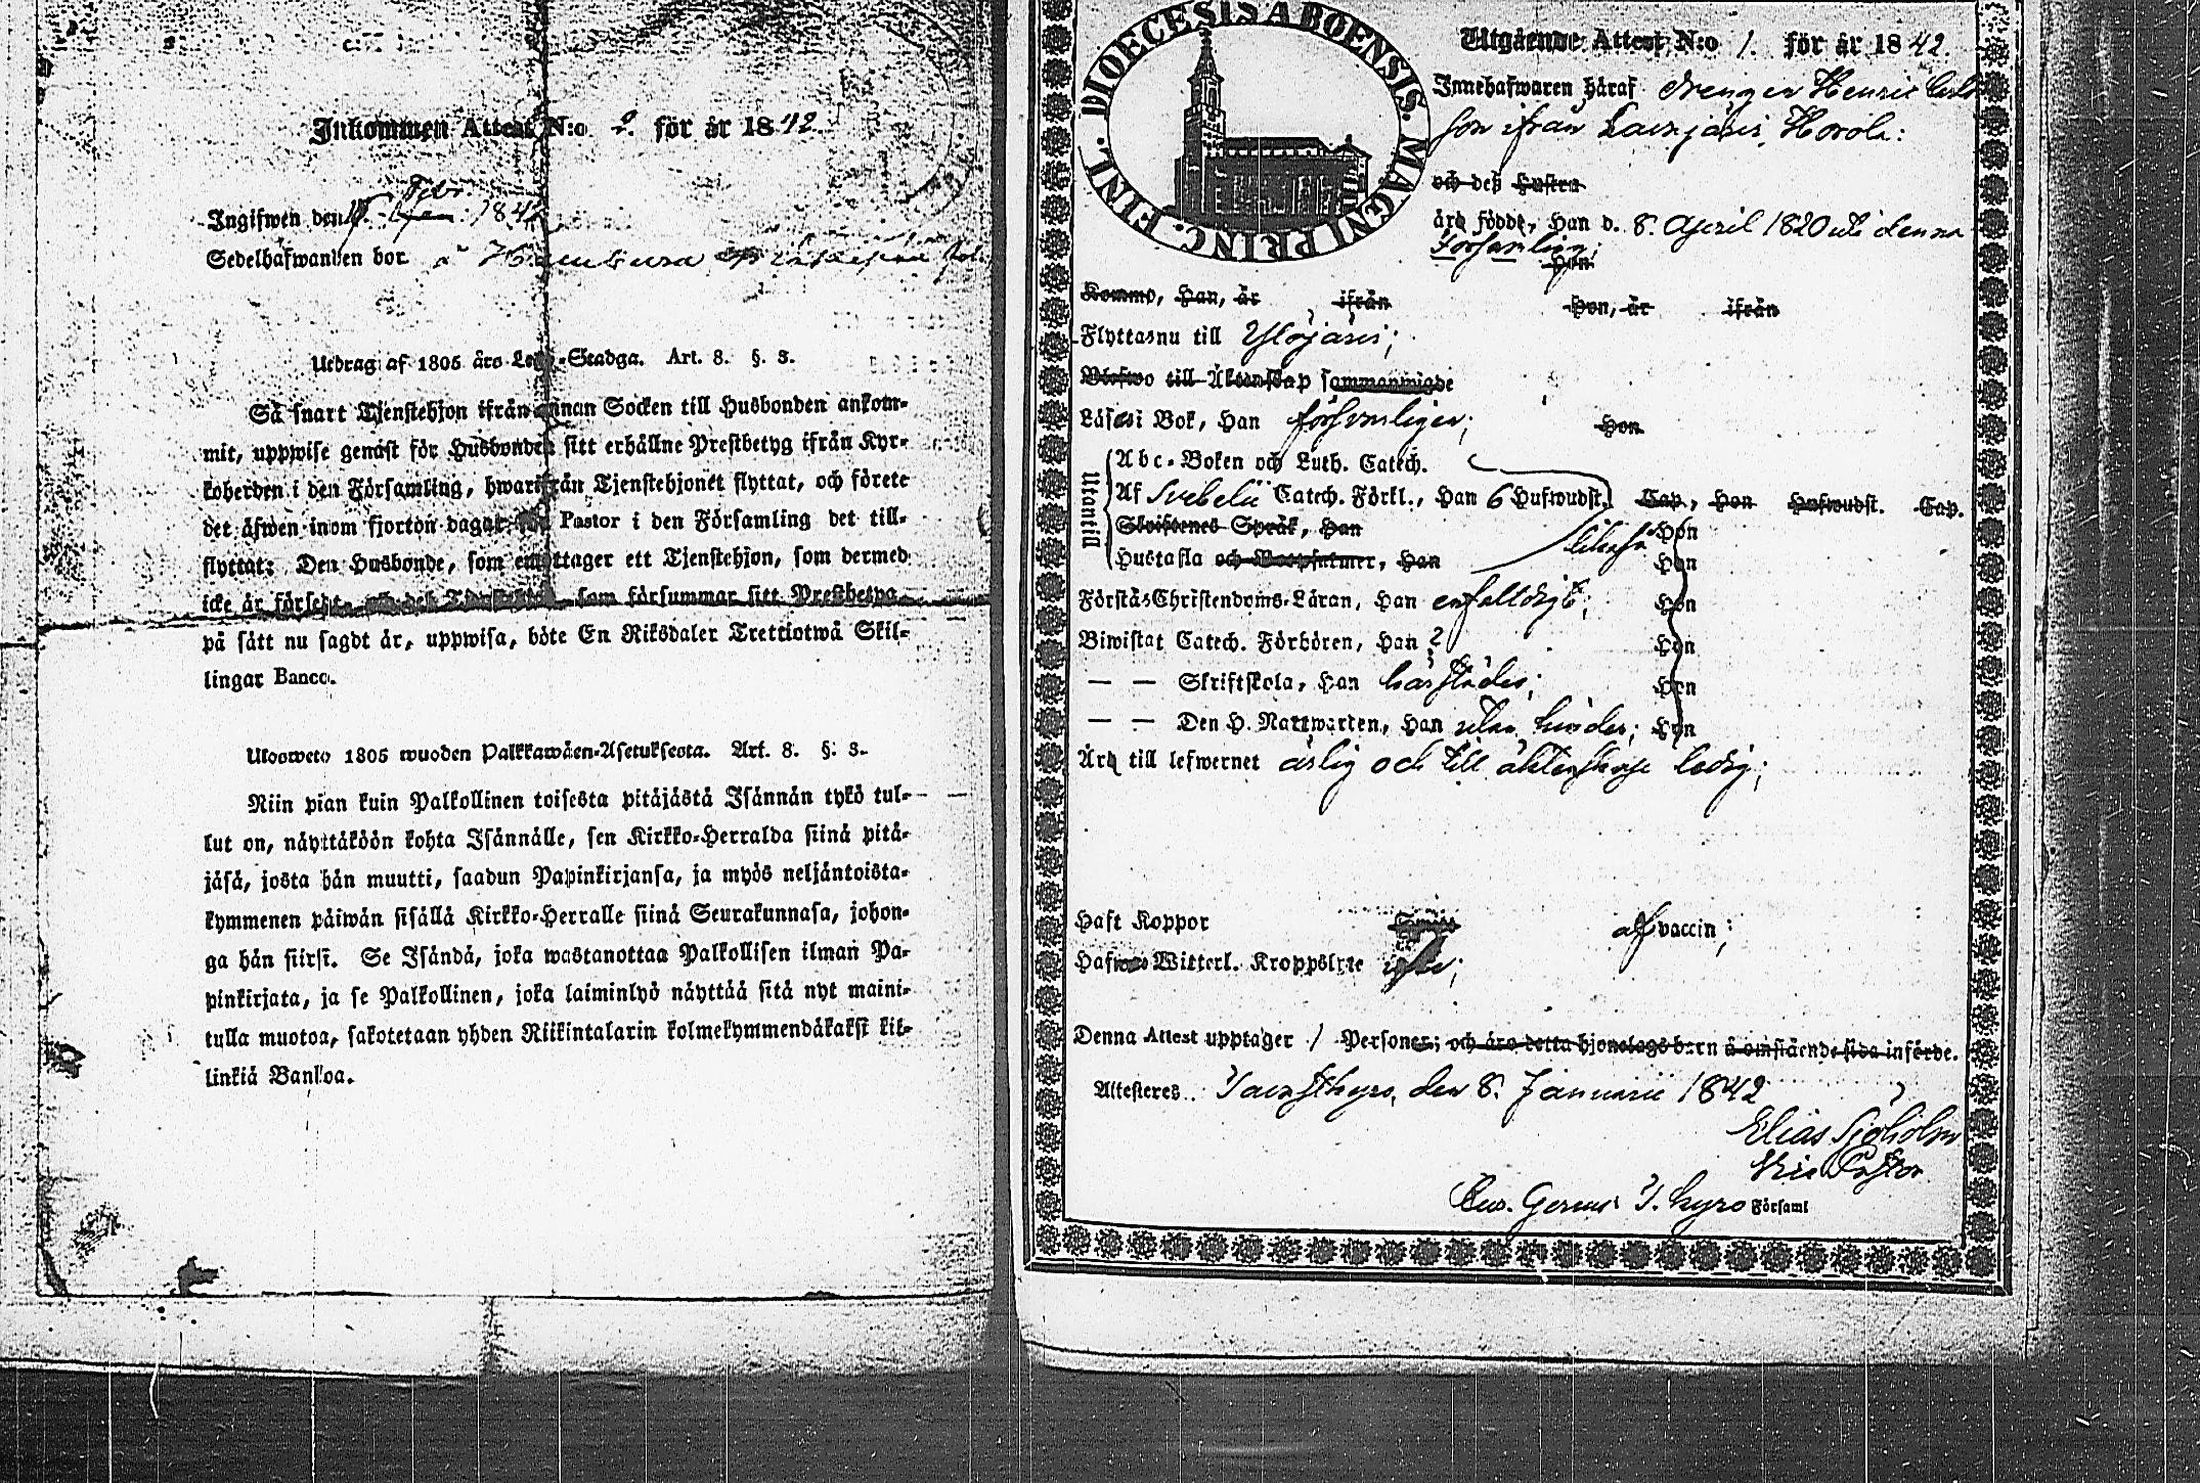 Inkommen Attest N:o 2. för år 1842.
Ingifwen den Febr. 1842
Sedelhafwanden bor å
Utdrag af 1805 års Lego-Stadga. Art. 8. §. 3.
Så snart Tjenstehjon ifrån annan Socken till Husbonden ankom-
mit, uppwise genast för Husbonden sitt erhållne Prestbetyg ifrån Kyr-
koherden i den Församling, hwarifrån Tjenstehjonet flyttat, och förete
det äfwen inom fjorton dagar Pastor i den Församling det till-
flyttat: Den Husbonde, som emottager ett Tjenstehjon, som dermed
icke är försedt, och det Tjenstehjon, som försummar sitt Prestbetyg
på sätt nu sagdt är, uppwisa, böte En Riksdaler Trettiotwå Skil-
lingar Banco.
Ulosweto 1805 wuoden Palkkawäen-Asetuksesta. Art. 8. §. 3.
Niin pian kuin Palkollinen toisesta pitäjästä Isännän tykö tul-
lut on, näyttäköön kohta Isännälle, sen Kirkko-Herralda siinä pitä-
jäsä, josta hän muutti, saadun Papinkirjansa, ja myös neljäntoista-
kymmenen päiwän sisällä Kirkko-Herralle siinä Seurakunnasa, johon-
ga hän siirsi. Se Isändä, joka wastanottaa Palkollisen ilman Pa-
pinkirjata, ja se Palkollinen, joka laiminlyö näyttää sitä nyt maini-
tulla muotoa, sakotetaan yhden Riikintalarin kolmekymmendäkaksi kil-
linkiä Bankoa.
DIOECESIS ABOENSIS. MAGNI PRINC. FINL.
Utgående Attest N:o 1. för år 1842.
Innehafwaren häraf Drengen Henric
son ifrån
och deß Hustru
ära födde, Han d. 8. April 1820 uti denna
Församling;
Hon
Kommo, Han, år ifrån Hon, år ifrån
Flyttas nu till Ylöjärvi;
till Äktenskap sammanwigde
Läses i Bok, Han försvarligen; Hon
Utantill
Abc-Boken och Luth. Catech.
Af Svebelii Catech. Förkl., Han 6 Hufwudst. Cap., Hon Hufwudst. Cap.
Skriftenes Språk, Han Hon
Hustafla och Han likaså Hon
Förstås Christendoms-Läran, Han enfaldigt; Hon
Biwistat Catech. Förhören, Han 2 Hon
— — Skriftskola, Han härstädes; Hon
— — Den H. Nattwarden, Han utan hinder; Hon
Ära till lefwernet ärlig och till äktenskap ledig;
Haft Koppor af vaccin;
Hafwa Witterl. Kroppslyte
Denna Attest upptager 1 Personer; och äro detta hjonelags barn å omstående sida införde.
Attesteres. Tavastkyro, den 8. Januarii 1842
Elias Sjöholm
Vice Pastor
T. kyro Församl